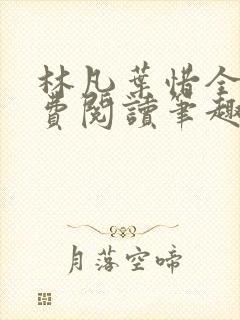 林凡葉惜全
費閱讀筆趣
月落空啼